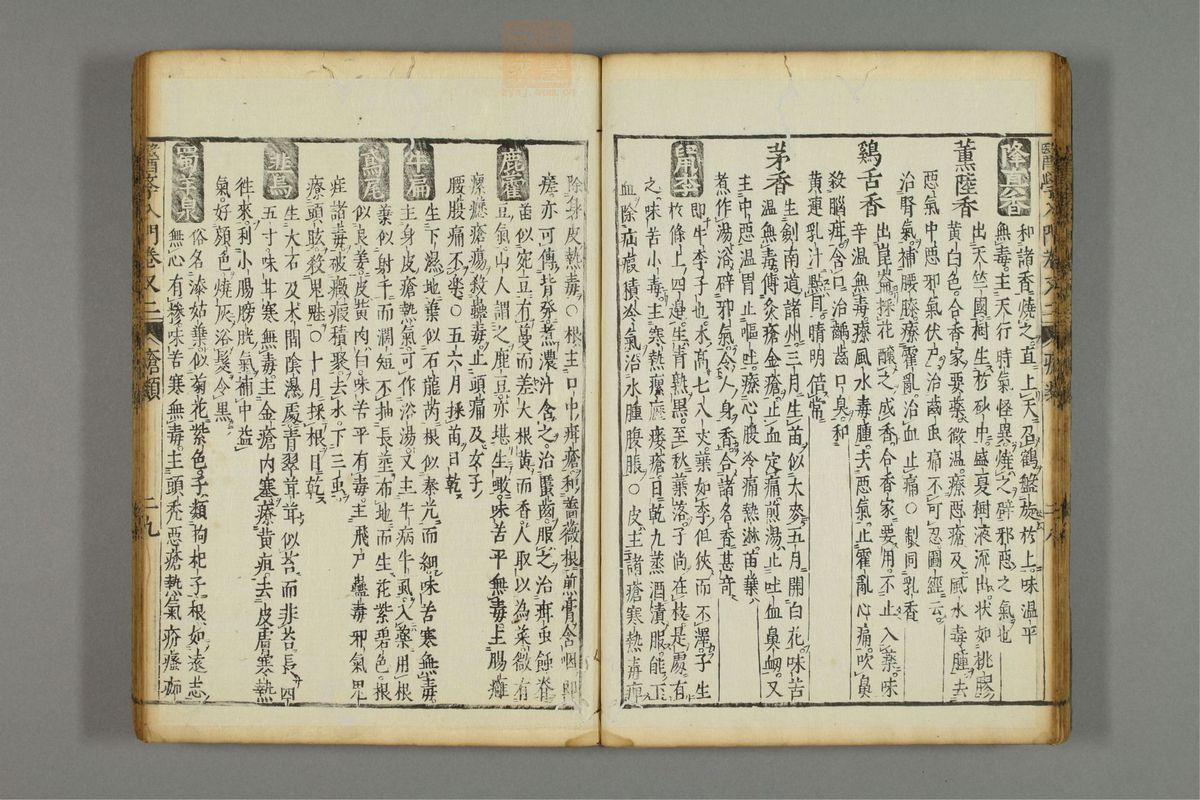 降真香
和諸香燒之直上天召鶴盤旋於上味温平
無毒主天行時氣怪異燒之辟邪惡之氣也
薫陸香
出天竺國樹生於砂中盛夏樹液流出状如桃膠
黄白色合香家要藥微温療惡瘡及風水毒腫去
惡氣中惡邪氣伏尸治齒虫痛不可忍圖經云
治腎氣補腰膝療霍亂治血止痛〇製同乳香
鷄舌香
出崑崙採花釀之成香合香家要用不止入藥味
辛温無毒療風水毒腫去惡氣止霍亂心痛吹鼻
殺腦疳含口治齲齒口臭和
黄連乳汁點目睛明倍常
茅香
生劍南道諸州三月生苗似大麥五月開白花味苦
温無毒傳灸瘡金瘡止血定痛煎湯止吐血鼻衂又
主中惡温胃止嘔吐療心腹冷痛熱淋苗葉
煮作湯浴辟邪氣令人身香合諸名香甚竒
鼠李
即牛李子也木高七八丈葉如李但狹而不澤子生
於條上四邊生青熟黒至秋葉落子尚在枝是處有
之味苦小毒主寒熱瘰癧瘻瘡日乾九蒸酒漬服能下
血除疝瘕積冷氣治水腫腹脹〇皮主諸瘡寒熱毒痺
除身皮熱毒〇根主口中疳瘡利薔薇根煎膏含咽即
瘥亦可傅背發煮濃汁含之治䘌齒服之治疳虫蝕脊
鹿藿
苗似宛豆有蔓而差大根黄而香人取以為菜微有
豆氣山人謂之鹿豆亦堪生啖味苦平無毒主腸癰
瘰癧瘡瘍殺蠱毒止頭痛及女子
腰股痛不樂〇五六月採苗日乾
牛扁
生下濕地葉似石龍芮根似秦艽而細味苦寒無毒
主身皮瘡熱氣可作浴湯又主牛病牛虱入藥用根
鳶尾
葉似射干而濶短不抽長莖布地而生花紫碧色根
似良姜皮黄肉白味苦平有毒主飛尸蠱毒邪氣鬼
疰諸毒破癥瘕積聚去水下三虫
療頭眩殺鬼魅〇十月採根日乾
生大石及木間陰濕處青翠茸茸似苔而非苔長四
五寸味甘寒無毒主金瘡内塞療黄疸去皮膚寒熱
徃來利小腸膀胱氣補中益
氣好顔色燒灰浴髮令黒
蜀羊泉
俗名漆姑葉似菊花紫色子類枸杞子根如遠志
無心有糝味苦寒無毒主頭禿惡瘡熱氣疥瘙痂
醫學入門卷又二
瘡類
二九